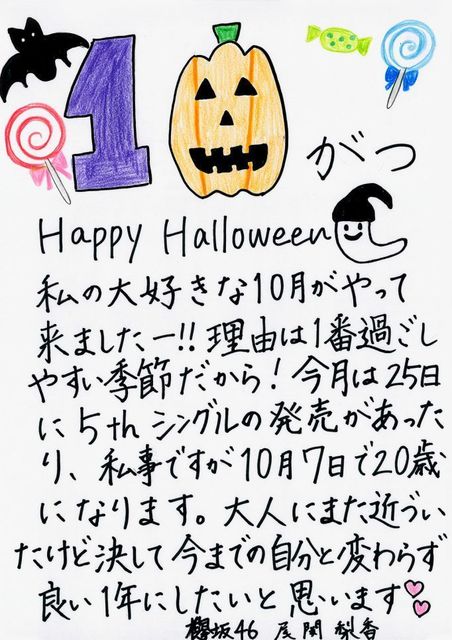 10がつ
Happy Halloween
私の大好きな10月がやって
来ましたー!!理由は1番過ごし
やすい季節だから!今月は25日
に5thシングルの発売があった
り、私事ですが10月7日で20歳
になります。大人にまた近づい
たけど決して今までの自分と変わらず
良い1年にしたいと思います♡♡
欅坂46 尾関梨香